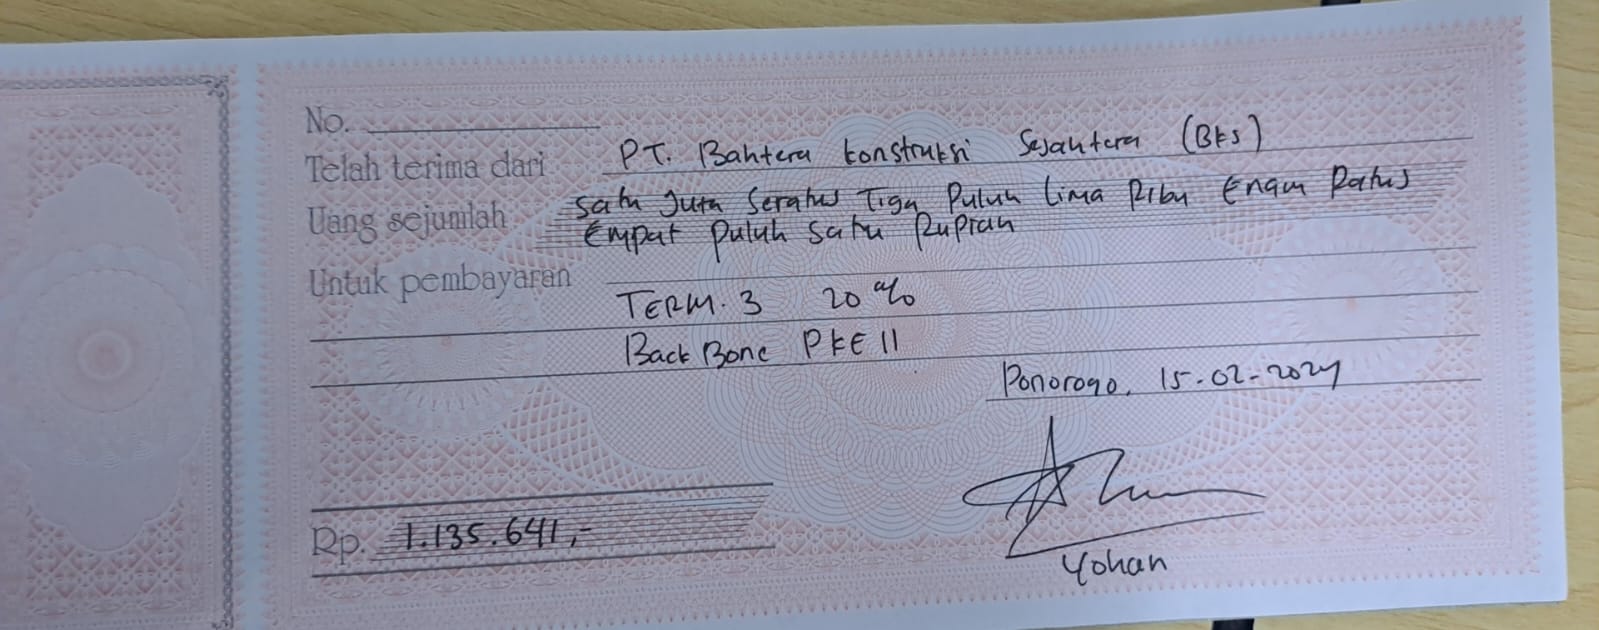 No.
Telah terima dari PT. Bahtera Konstruksi Sejahtera (BKS)
Uang sejumlah Satu Juta Seratus Tiga Puluh Lima Ribu Enam Ratus
Empat Puluh Satu Rupiah
Untuk pembayaran
TERM. 3 20 %
Back Bone PKE II
Ponorogo, 15-02-2024
Rp. 1.135.641,-
Yohan